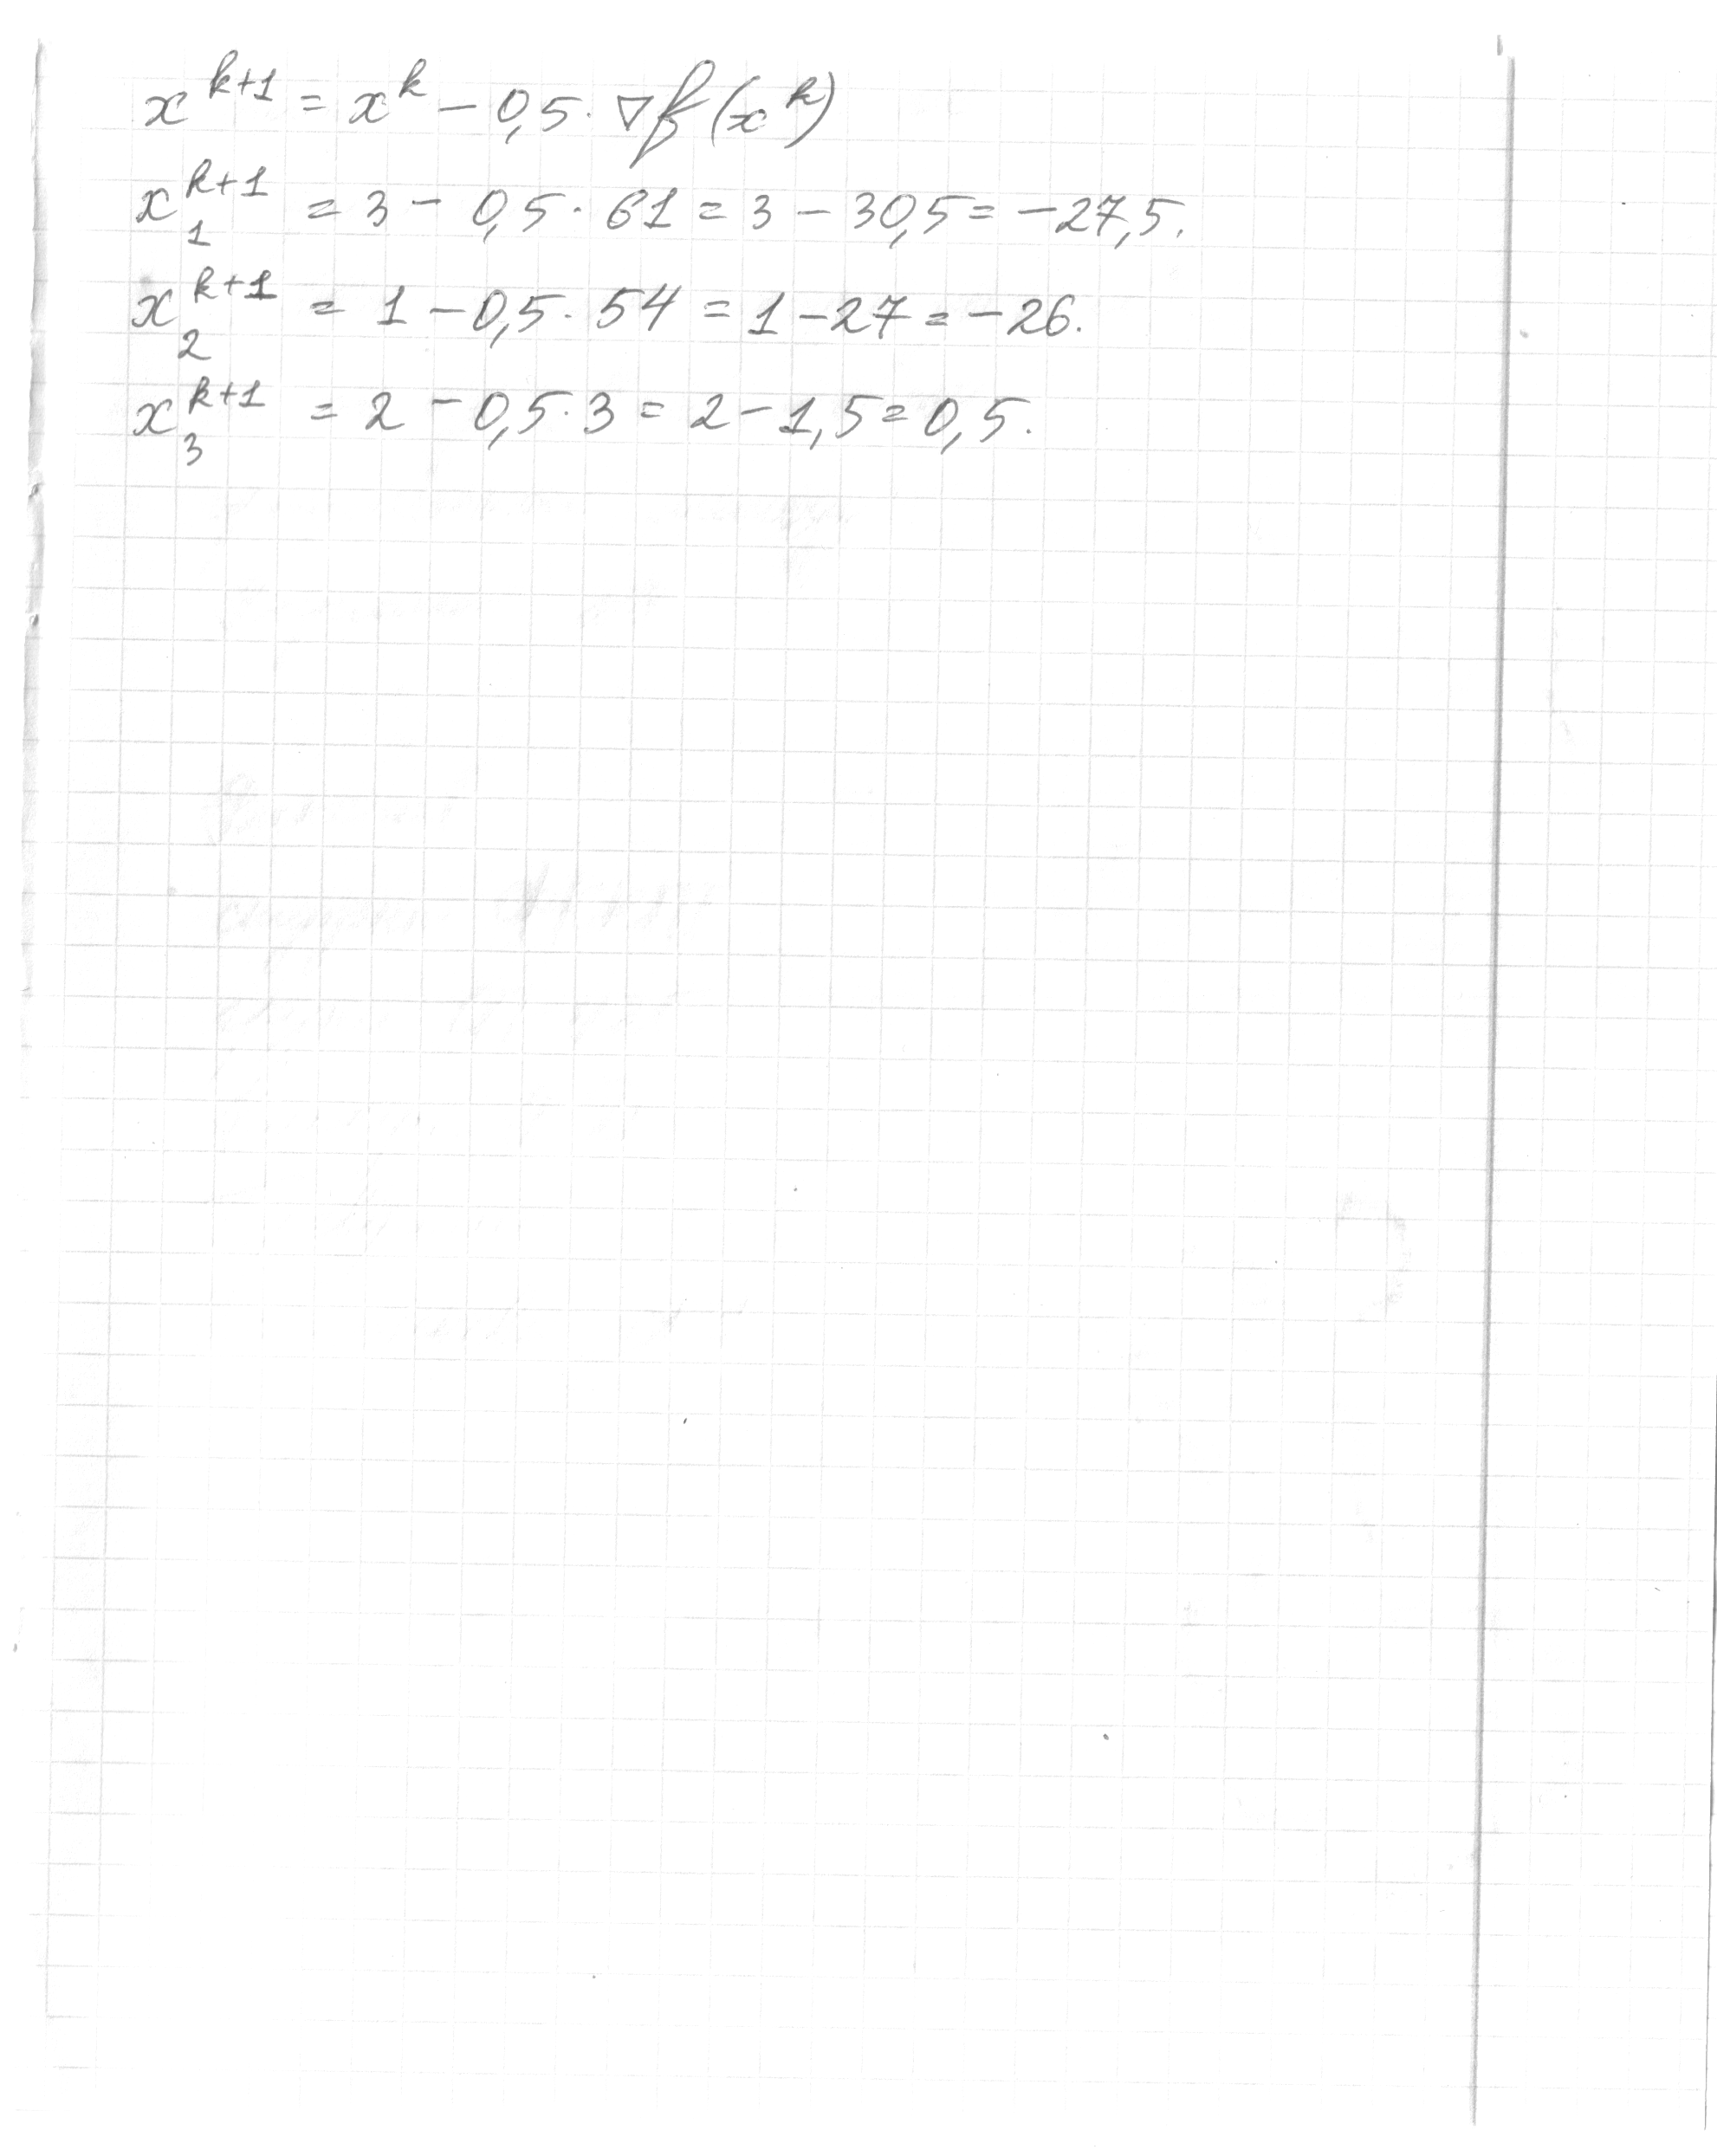 x^{k+1} = x^k - 0,5 · ∇f(x^k)
x_1^{k+1} = 3 - 0,5 · 61 = 3 - 30,5 = -27,5.
x_2^{k+1} = 1 - 0,5 · 54 = 1 - 27 = -26.
x_3^{k+1} = 2 - 0,5 · 3 = 2 - 1,5 = 0,5.